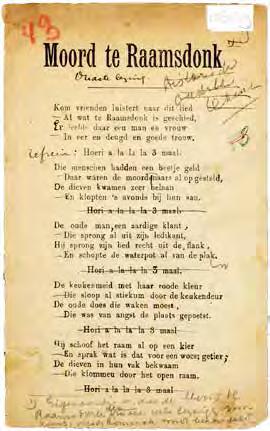 Moord te Raamsdonk
Onaste lezing
Kom vrienden luistert naar dit lied
—Al wat te Raamsdonk is geschied,
Er leefde daar een man en vrouw
In eer en deugd en goede trouw,
Refrein: Hori a la la la 3 maal.
Die menschen hadden een beetje geld
—Daar waren de moordenaars al op gesteld,
De dieven kwamen zeer belaan
—En klopten 's avonds bij hen aan.
Hori a la la la 3 maal.
De oude man, een aardige klant,
—Die sprong al uit zijn ledikant,
Hij sprong zijn bed recht uit de flank,
—En schopte de waterpot al van de plak.
Hori a la la la 3 maal.
De keukenmeid met haar roode kleur
—Die sloop al stiekum door de keukendeur
De oude does die waken moest,
—Die was van angst de plaats gepoetst.
Hori a la la la 3 maal
Hij schoof het raam al op een kier
—En sprak wat is dat voor een woest getier;
De dieven in hun vak bekwaam
—Die klommen door het open raam.
Hori a la la la 3 maal